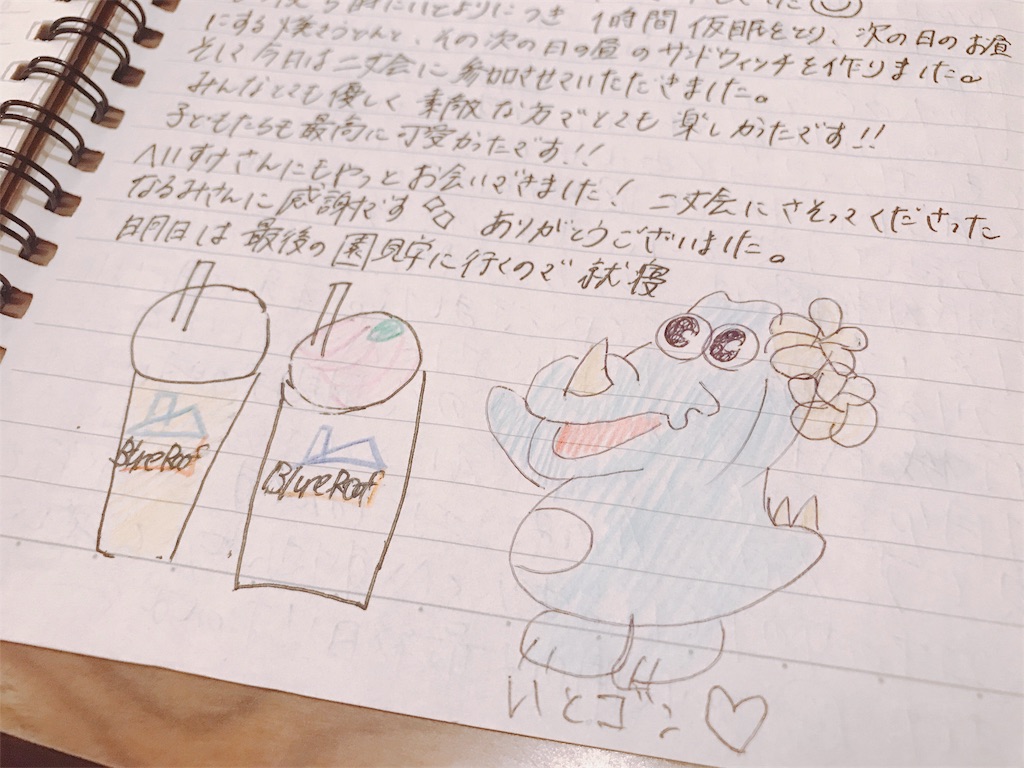 時間 仮眠をとり、次の日のお昼
にする焼きうどんと、その次の日の昼のサンドウィッチを作りました。
そして今日は二丈会に参加させていただきました。
みんなとても優しく素敵な方でとても楽しかったです!!
子どもたちも最高に可愛かったです!!
へいすけさんにもやっとお会いできました! 二丈会にさそってくださった
なるみさんに感謝です ありがとうございました。
明日は最後の園見学に行くので就寝
Blue Roof
Blue Roof
いとゴン♡